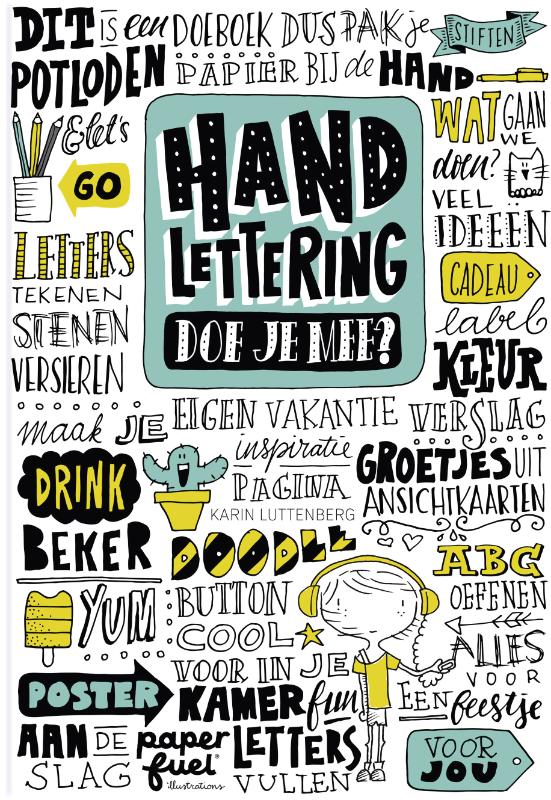 DIT IS een DOEBOEK DUS PAK je STIFTEN
POTLODEN PAPIER BIJ de HAND
& let's
GO
HAND
LETTERING
DOE JE MEE?
WAT GAAN
WE
doen?
VEEL
IDEEËN
CADEAU
label
KLEUR
LETTERS
TEKENEN
STENEN
VERSIEREN
maak JE EIGEN VAKANTIE VERSLAG
inspiratie
PAGINA
KARIN LUTTENBERG
GROETJES UIT
ANSICHTKAARTEN
DRINK
BEKER
DOODLE
ABC
OEFENEN
YUM
BUTTON
COOL
ALLES
VOOR
EEN feestje
VOOR IN JE
POSTER KAMER fun
AAN DE paper LETTERS
SLAG fuel VULLEN
illustrations
VOOR
JOU